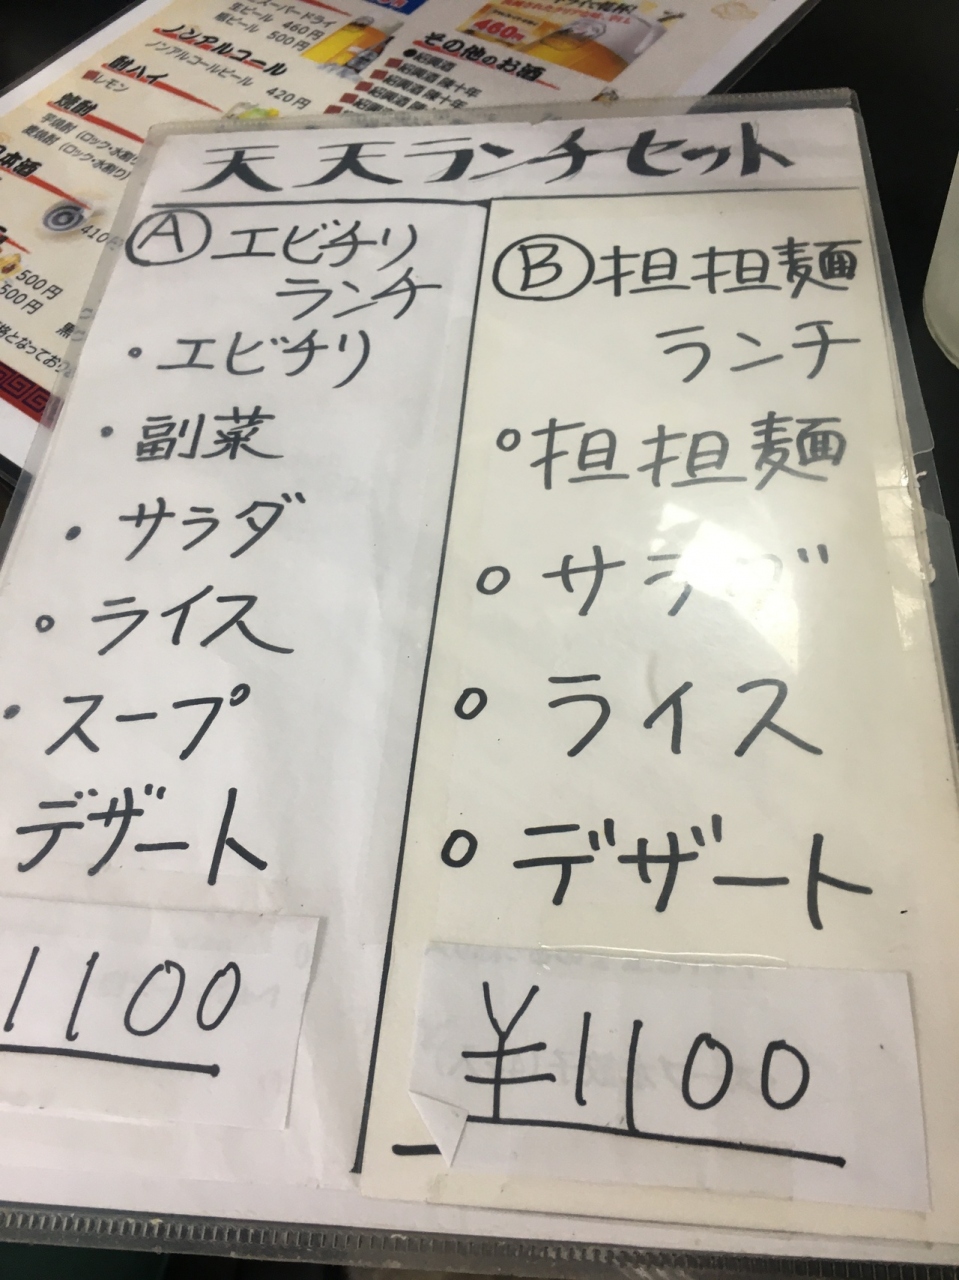 スーパードライ
生ビール 460円
瓶ビール 500円
ノンアルコール
ノンアルコールビール 420円
酎ハイ
レモン
焼酎
芋焼酎（ロック・水割り
麦焼酎（ロック・水割り）
本酒
410円
500円
500円
460円
その他のお酒
紹興酒
紹興酒 陳十年
紹興酒 陳十年
天天ランチセット
Ⓐエビチリ
ランチ
・エビチリ
・副菜
・サラダ
・ライス
・スープ
デザート
1100
Ⓑ担担麺
ランチ
○担担麺
○サラダ
○ライス
○デザート
¥1100